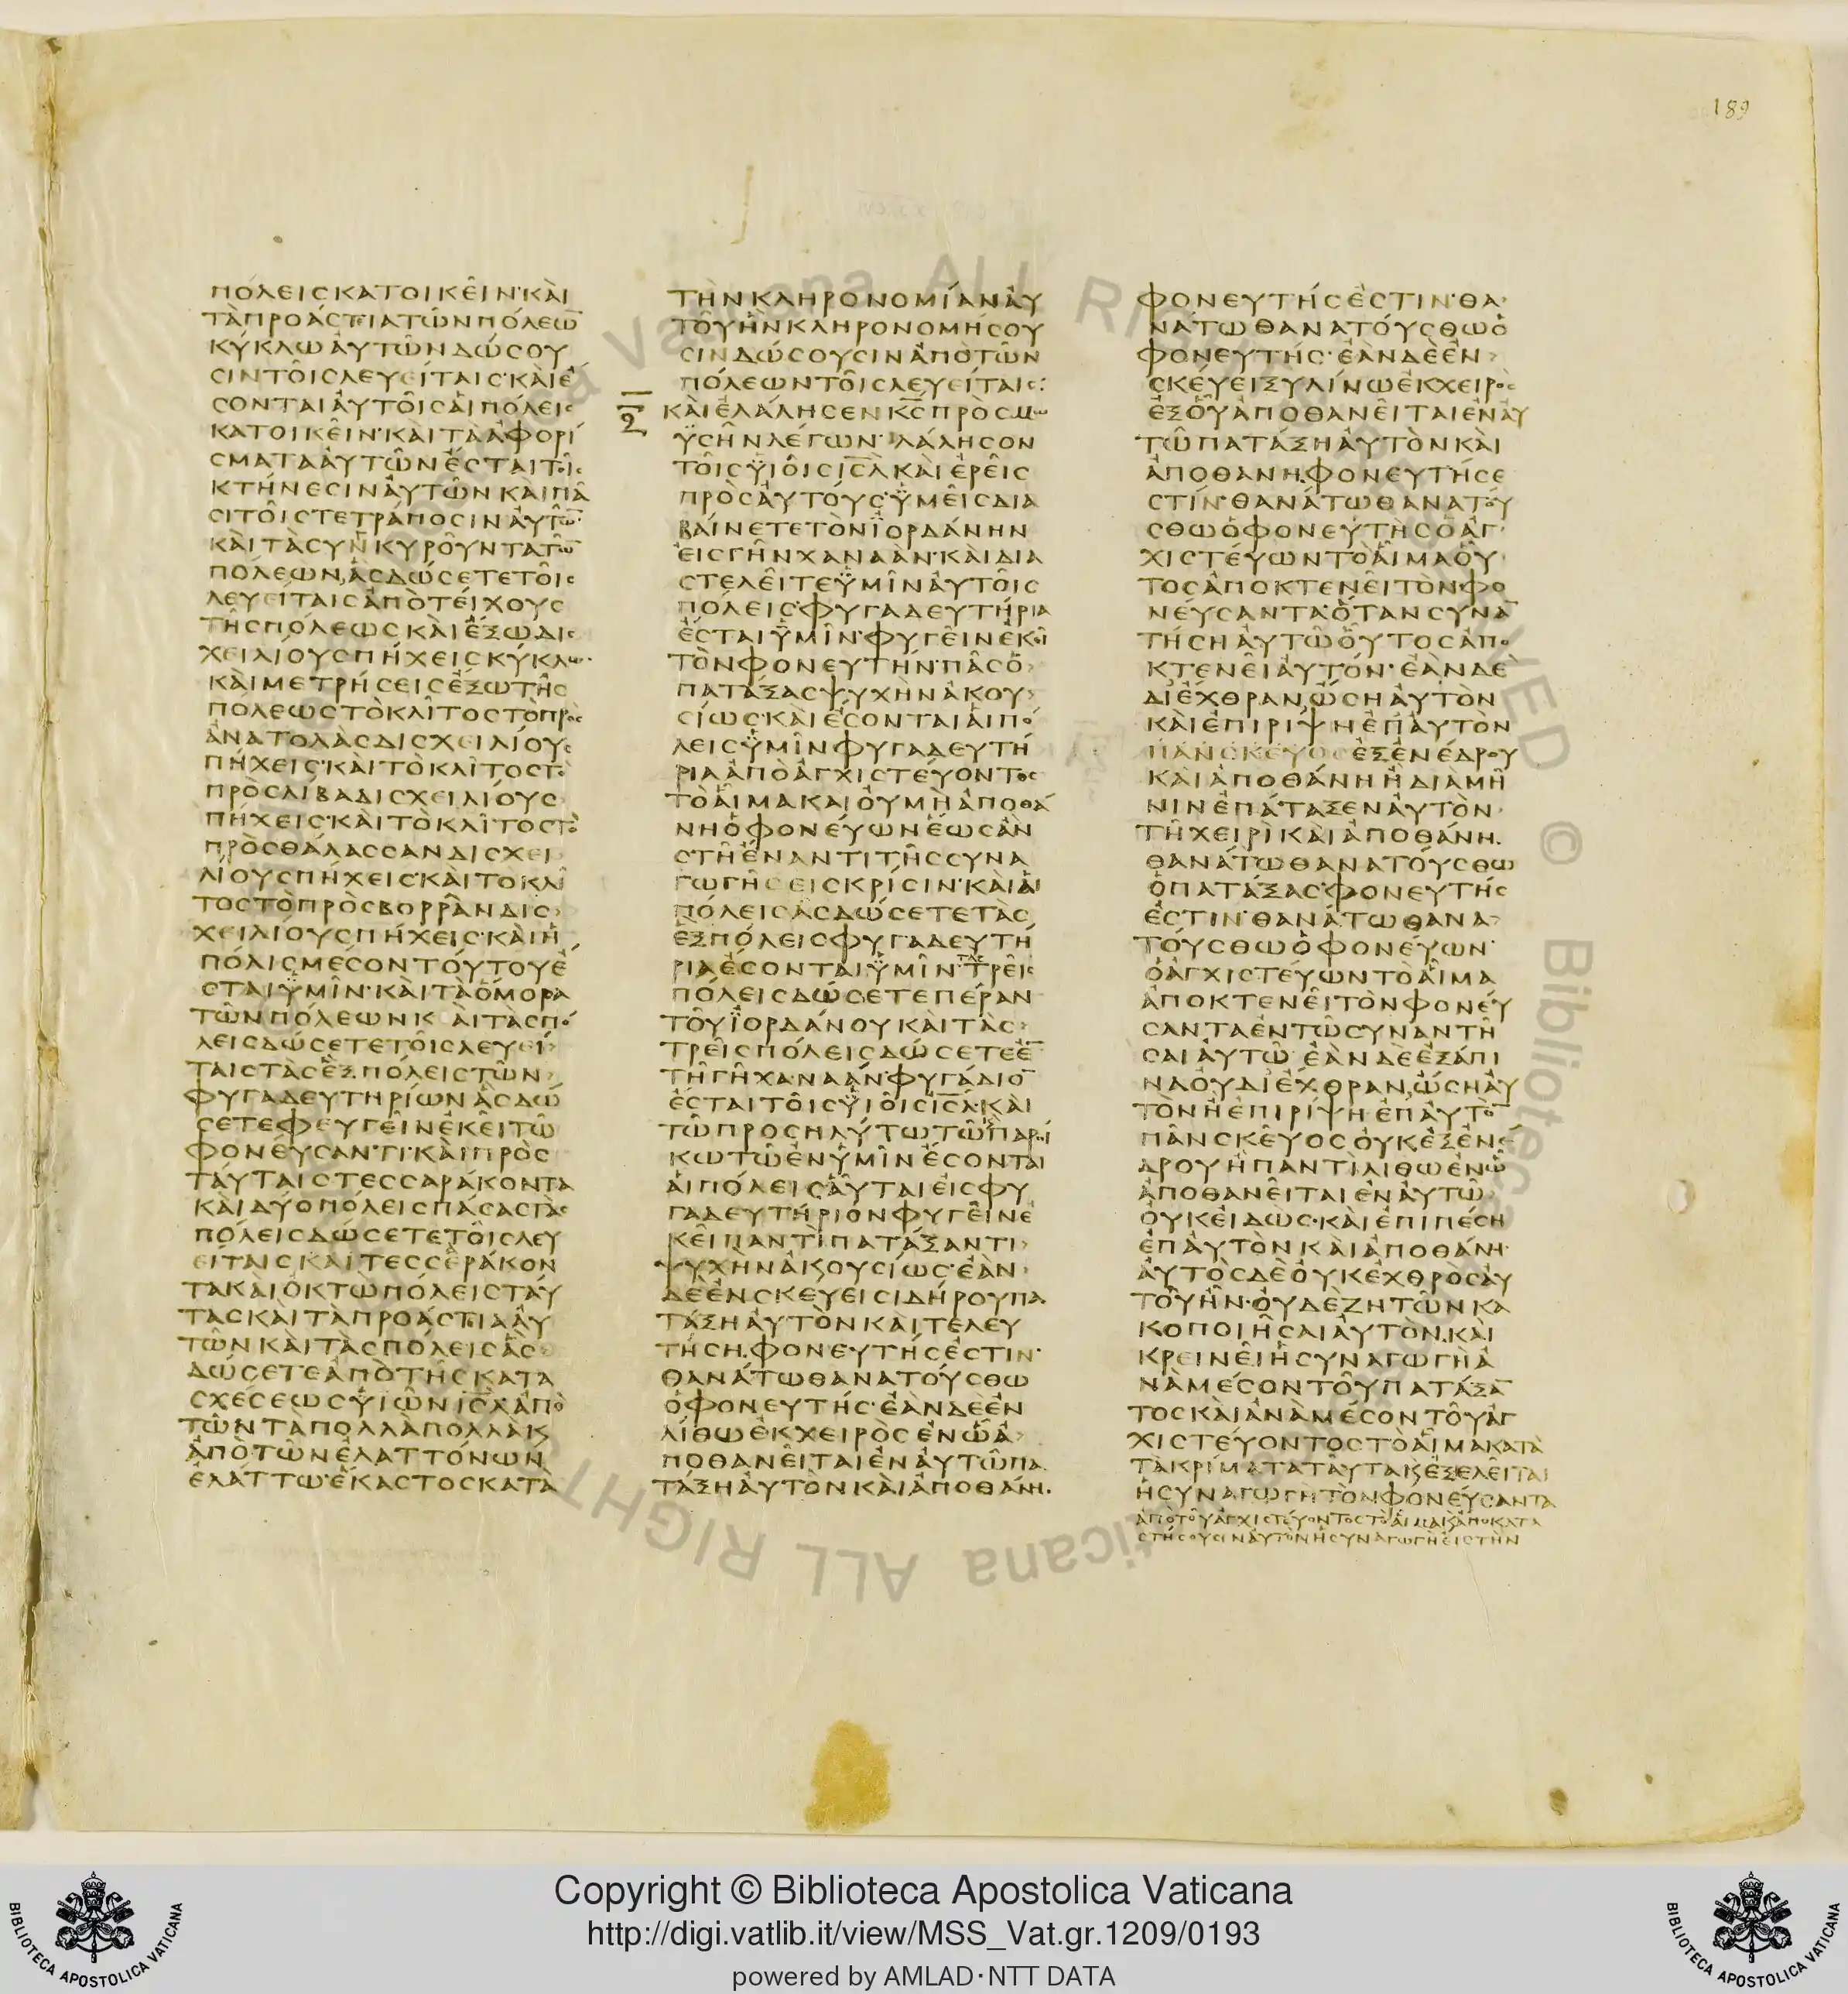 189
πόλεις κατοικεῖν· καὶ
τὰ προάστια τῶν πόλεω̅
κύκλω αὐτῶν δώσου
σιν τοῖς λευείταις· καὶ ἔ
σονται αὐτοῖς αἱ πόλεις
κατοικεῖν· καὶ τὰ ἀφορί
σματα αὐτῶν ἔσται τοῖς
κτήνεσιν αὐτῶν καὶ πᾶ
σι τοῖς τετράποσιν αὐτῶ̅·
καὶ τὰ συνκυροῦντα τῶ̅
πόλεων, ἃς δώσετε τοῖς
λευείταις ἀπὸ τείχους
τῆς πόλεως καὶ ἔξω δις
χειλίους πήχεις κύκλω·
καὶ μετρήσεις ἔξω τῆς
πόλεως τὸ κλίτος τὸ πρὸς
ἀνατολὰς δισχειλίους
πήχεις· καὶ τὸ κλίτος τὸ
πρὸς λίβα δισχειλίους
πήχεις· καὶ τὸ κλίτος τὸ
πρὸς θάλασσαν δισχει
λίους πήχεις· καὶ τὸ κλί
τος τὸ πρὸς βορρᾶν δισ
χειλίους πήχεις· καὶ ἡ
πόλις μέσον τούτου ἔ
σται ὑμῖν· καὶ τὰ ὅμορα
τῶν πόλεων καὶ τὰς πό
λεις δώσετε τοῖς λευεί
ταις τὰς ἓξ πόλεις τῶν
φυγαδευτηρίων ἃς δώ
σετε φεύγειν ἐκεῖ τῶ
φονεύσαντι· καὶ πρὸς
ταύταις τεσσαράκοντα
καὶ δύο πόλεις πάσας τὰς
πόλεις δώσετε τοῖς λευ
είταις καὶ τεσσεράκον
τα καὶ ὀκτὼ πόλεις ταύ
τας καὶ τὰ προάστια αὐ
τῶν καὶ τὰς πόλεις ἃς
δώσετε ἀπὸ τῆς κατα
σχέσεως υἱῶν ι̅σ̅λ̅ ἀπὸ
τῶν τὰ πολλὰ πολλὰ κ̣
ἀπὸ τῶν ἐλαττόνων
ἐλάττω· ἕκαστος κατὰ
τὴν κληρονομίαν αὐ
τοῦ ἣν κληρονομήσου
σιν δώσουσιν ἀπὸ τῶν
πόλεων τοῖς λευείταις:
καὶ ἐλάλησεν κ̅ς̅ πρὸς μω
ϋσῆν λέγων· λάλησον
τοῖς υἱοῖς ι̅σ̅λ̅ καὶ ἐρεῖς
πρὸς αὐτούς· ὑμεῖς δια
βαίνετε τὸν ἰορδάνην
εἰς γῆν χαναάν· καὶ δια
στελεῖτε ὑμῖν αὐτοῖς
πόλεις· φυγαδευτήρια
ἔσται ὑμῖν· φυγεῖν ἐκεῖ
τὸν φονευτήν· πᾶς ὁ
πατάξας ψυχὴν ἀκου
σίως· καὶ ἔσονται αἱ πό
λεις ὑμῖν φυγαδευτή
ρια ἀπὸ ἀγχιστεύοντος
τὸ αἷμα καὶ οὐ μὴ ἀποθά
νη ὁ φονεύων ἕως ἂν
στῆ ἔναντι τῆς συνα
γωγῆς εἰς κρίσιν· καὶ αἱ
πόλεις ἃς δώσετε τὰς
ἓξ πόλεις φυγαδευτή
ρια ἔσονται ὑμῖν· τὰς τρεῖς
πόλεις δώσετε πέραν
τοῦ ἰορδάνου καὶ τὰς
τρεῖς πόλεις δώσετε ἐ̅
τῆ γῆ χαναάν· φυγάδιο̅
ἔσται τοῖς υἱοῖς ι̅σ̅λ̅· καὶ
τῶ προσηλύτω τῶ παροί
κω τῶ ἐν ὑμῖν ἔσονται
αἱ πόλεις αὗται εἰς φυ
γαδευτήριον φυγεῖν ἐ
κεῖ παντὶ πατάξαντι
ψυχὴν ἀκουσίως· ἐὰν
δὲ ἐν σκεύει σιδήρου πα
τάξη αὐτὸν καὶ τελευ
τήση, φονευτής ἐστιν·
θανάτω θανατούσθω
ὁ φονευτής· ἐὰν δὲ ἐν
λίθω ἐκ χειρὸς ἐν ὧ ἀ
ποθανεῖται ἐν αὐτῶ πα
τάξη αὐτὸν καὶ ἀποθάνη.
φονευτής ἐστιν· θα
νάτω θανατούσθω ὁ
φονευτής· ἐὰν δὲ ἐν
σκεύει ξυλίνω ἐκ χειρὸς
ἐξ οὗ ἀποθανεῖται ἐν αὐ
τῶ πατάξη αὐτὸν καὶ
ἀποθάνη, φονευτής ἐ
στιν· θανάτω θανατού
σθω ὁ φονευτὴς ὁ ἀγ
χιστεύων τὸ αἷμα οὗ
τος ἀποκτενεῖ τὸν φο
νεύσαντα· ὅταν συνα̅
τήση αὐτῶ οὗτος ἀπο
κτενεῖ αὐτόν· ἐὰν δὲ
δι ἔχθραν, ὤση αὐτὸν
καὶ ἐπιρίψη ἐπ αὐτὸν
πᾶν σκεῦος ἐξ ἐνέδρου
καὶ ἀποθάνη ἢ διὰ μῆ
νιν ἐπάταξεν αὐτὸν
τῆ χειρὶ καὶ ἀποθάνη.
θανάτω θανατούσθω
ὁ πατάξας· φονευτής
ἐστιν· θανάτω θανα
τούσθω ὁ φονεύων·
ὁ ἀγχιστεύων τὸ αἷμα
ἀποκτενεῖ τὸν φονεύ
σαντα ἐν τῶ συναντῆ
σαι αὐτῶ· ἐὰν δὲ ἐξάπι
να οὐ δι ἔχθραν, ὤση αὐ
τὸν ἢ ἐπιρίψη ἐπ αὐτὸ̅
πᾶν σκεῦος οὐκ ἐξ ἐνέ
δρου ἢ παντὶ λίθω ἐν ὧ
ἀποθανεῖται ἐν αὐτῶ
οὐκ εἰδώς· καὶ ἐπιπέση
ἐπ αὐτὸν καὶ ἀποθάνη·
αὐτὸς δὲ οὐκ ἐχθρὸς αὐ
τοῦ ἦν· οὐδὲ ζητῶν κα
κοποιῆσαι αὐτὸν. καὶ
κρεινεῖ ἡ συναγωγὴ ἀ
νὰ μέσον τοῦ πατάξα̅
τος καὶ ἀνὰ μέσον τοῦ ἀγ
χιστεύοντος τὸ αἷμα κατὰ
τὰ κρίματα ταῦτα κ̣ ἐξελεῖται
ἡ συναγωγὴ τὸν φονεύσαντα
ἀπὸ τοῦ ἀγχιστεύοντος τὸ αἷμα κ̣ ἀποκατα
στήσουσιν αὐτὸν ἡ συναγωγὴ εἰς τὴν
Copyright © Biblioteca Apostolica Vaticana
http://digi.vatlib.it/view/MSS_Vat.gr.1209/0193
powered by AMLAD·NTT DATA
BIBLIOTECA APOSTOLICA VATICANA
BIBLIOTECA APOSTOLICA VATICANA